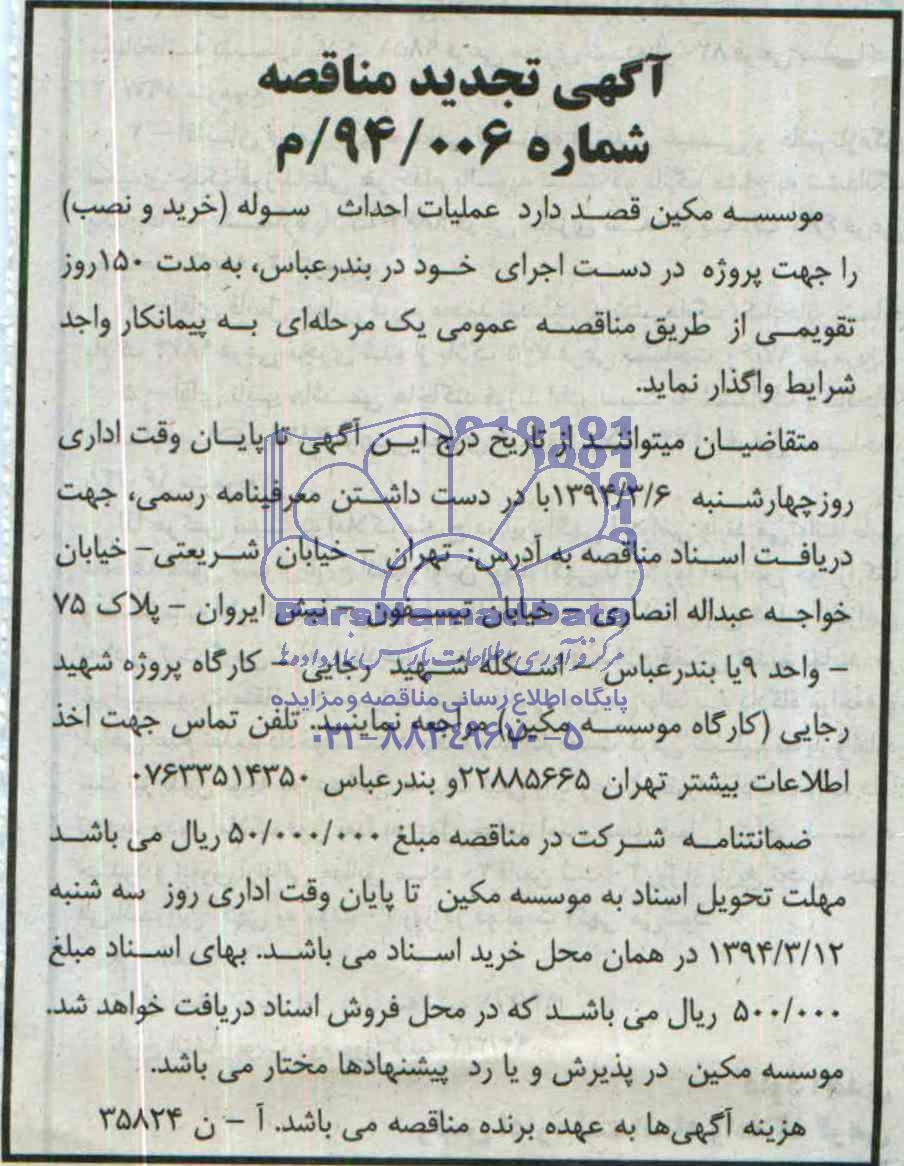 آگهی تجدید مناقصه
شماره ۹۴/۰۰۶/م
موسسه مکین قصد دارد عملیات احداث سوله (خرید و نصب)
را جهت پروژه در دست اجرای خود در بندرعباس، به مدت ۱۵۰روز
تقویمی از طریق مناقصه عمومی یک مرحله‌ای به پیمانکار واجد
شرایط واگذار نماید.
متقاضیان میتوانند از تاریخ درج این آگهی تا پایان وقت اداری
روزچهارشنبه ۱۳۹۴/۳/۶با در دست داشتن معرفینامه رسمی، جهت
دریافت اسناد مناقصه به آدرس: تهران - خیابان شریعتی- خیابان
خواجه عبداله انصاری - خیابان تیسفون - نبش ایروان - پلاک ۷۵
- واحد ۹یا بندرعباس - اسکله شهید رجایی - کارگاه پروژه شهید
رجایی (کارگاه موسسه مکین) مراجعه نمایند. تلفن تماس جهت اخذ
اطلاعات بیشتر تهران ۲۲۸۸۵۶۶۵و بندرعباس ۰۷۶۳۳۵۱۴۳۵۰
ضمانتنامه شرکت در مناقصه مبلغ ۵۰/۰۰۰/۰۰۰ ریال می باشد
مهلت تحویل اسناد به موسسه مکین تا پایان وقت اداری روز سه شنبه
۱۳۹۴/۳/۱۲ در همان محل خرید اسناد می باشد. بهای اسناد مبلغ
۵۰۰/۰۰۰ ریال می باشد که در محل فروش اسناد دریافت خواهد شد.
موسسه مکین در پذیرش و یا رد پیشنهادها مختار می باشد.
هزینه آگهی‌ها به عهده برنده مناقصه می باشد. آ - ن ۳۵۸۲۴
ParsNamadData
مرکز فرآوری اطلاعات پارس نماد داده‌ها
پایگاه اطلاع رسانی مناقصه و مزایده
۰۲۱-۸۸۳۴۹۶۷۰-۵